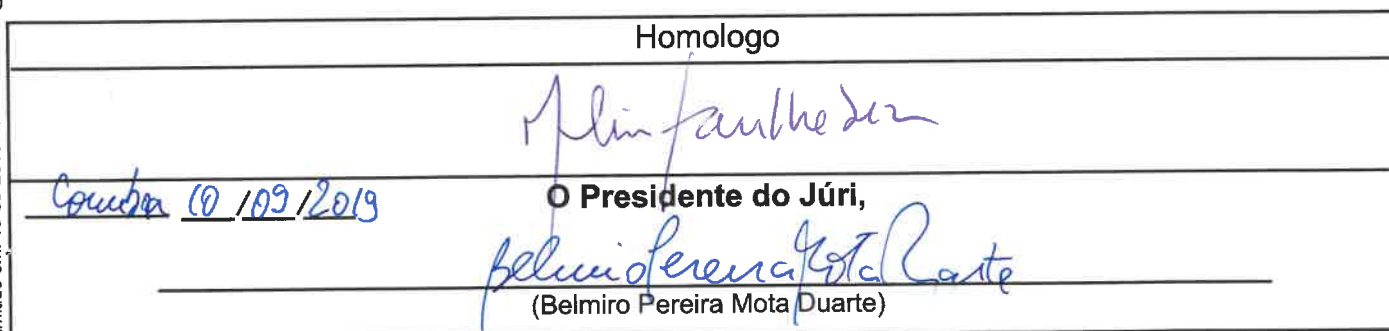 Homologo
Coimbra 10/09/2019
O Presidente do Júri,
Belmiro Pereira Mota Duarte
(Belmiro Pereira Mota Duarte)